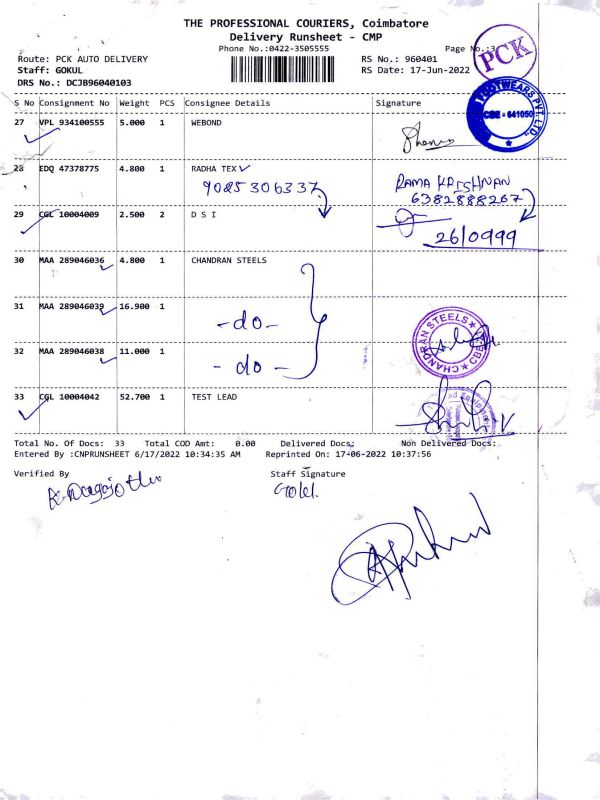 THE PROFESSIONAL COURIERS, Coimbatore
Delivery Runsheet - CMP
Phone No.:0422-3505555
Page No.:3
PCK
Route: PCK AUTO DELIVERY
RS No.: 960401
Staff: GOKUL
RS Date: 17-Jun-2022
DRS No.: DCJB96040103
FOOTWEARS PVT. LTD.
CBE - 641050
S No Consignment No Weight PCS Consignee Details Signature
27 VPL 934100555 5.000 1 WEBOND
28 EDQ 47378775 4.800 1 RADHA TEX
9085306337
RAMA KRISHNAN
6382888267
29 CGL 10004009 2.500 2 D S I
26/0999
30 MAA 289046036 4.800 1 CHANDRAN STEELS
31 MAA 289046039 16.900 1
-do-
32 MAA 289046038 11.000 1
-do-
CHANDRAN STEELS
CBE
33 CGL 10004042 52.700 1 TEST LEAD
Total No. Of Docs: 33 Total COD Amt: 0.00 Delivered Docs: Non Delivered Docs:
Entered By :CNPRUNSHEET 6/17/2022 10:34:35 AM Reprinted On: 17-06-2022 10:37:56
Verified By Staff Signature